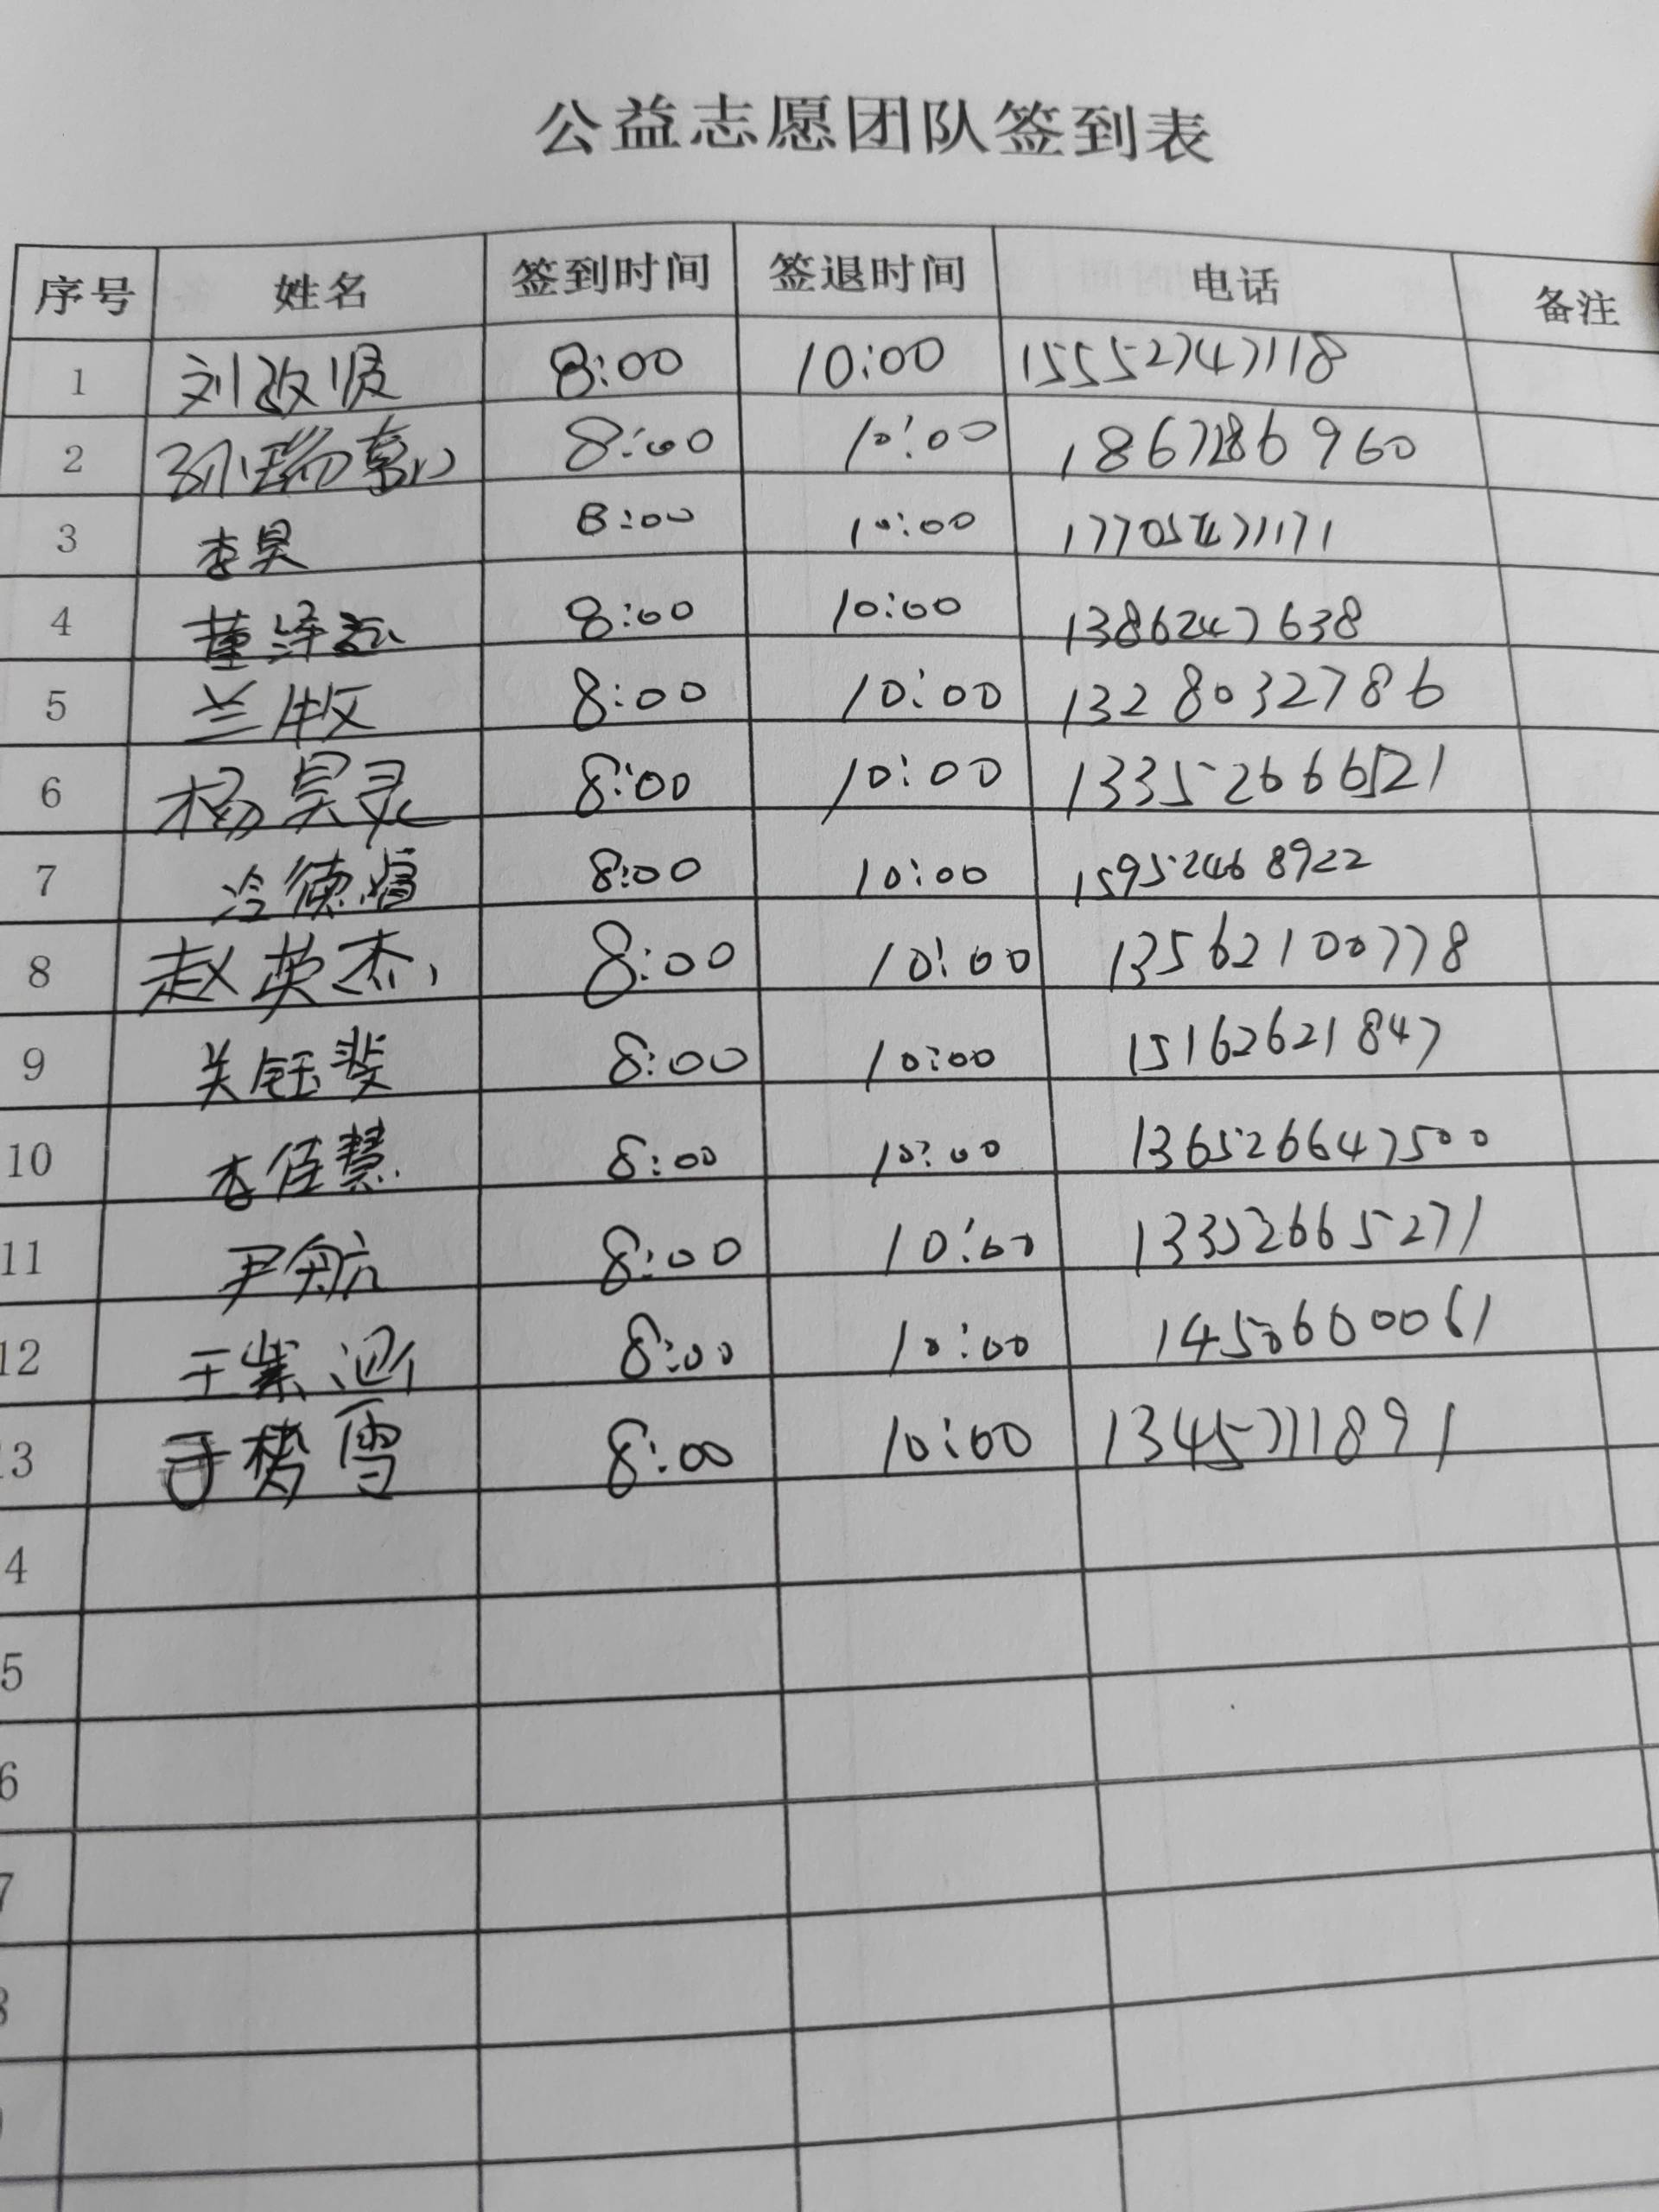 公益志愿团队签到表
序号 姓名 签到时间 签退时间 电话 备注
1 刘改 8:00 10:00 15552747118
2 孙瑞 8:00 10:00 1867286960
3 李昊 8:00 10:00 17705471171
4 董泽 8:00 10:00 1386247638
5 兰牧 8:00 10:00 1328032786
6 杨昊灵 8:00 10:00 13352666521
7 冷德 8:00 10:00 15952468922
8 赵英杰 8:00 10:00 13562100778
9 关钰斐 8:00 10:00 15162621847
10 李佳慧 8:00 10:00 136526647500
11 尹航 8:00 10:00 13352665271
12 王紫涵 8:00 10:00 14506600061
13 于梦雪 8:00 10:00 13457711891
4
5
6
7
8